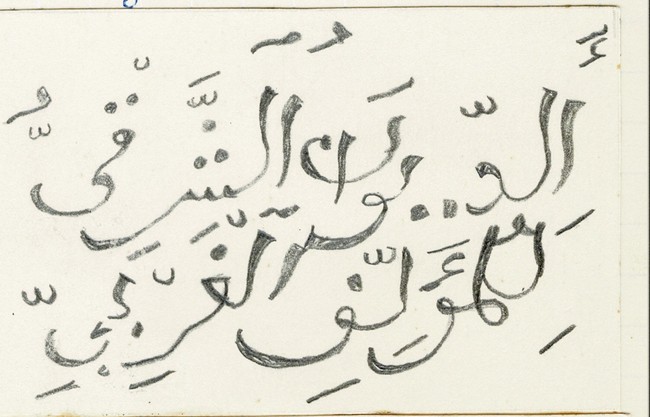 اَلدِّيوَانُ الشَّرْقِيُّ
لِلْمُؤَلِّفِ الْغَرْبِيِّ